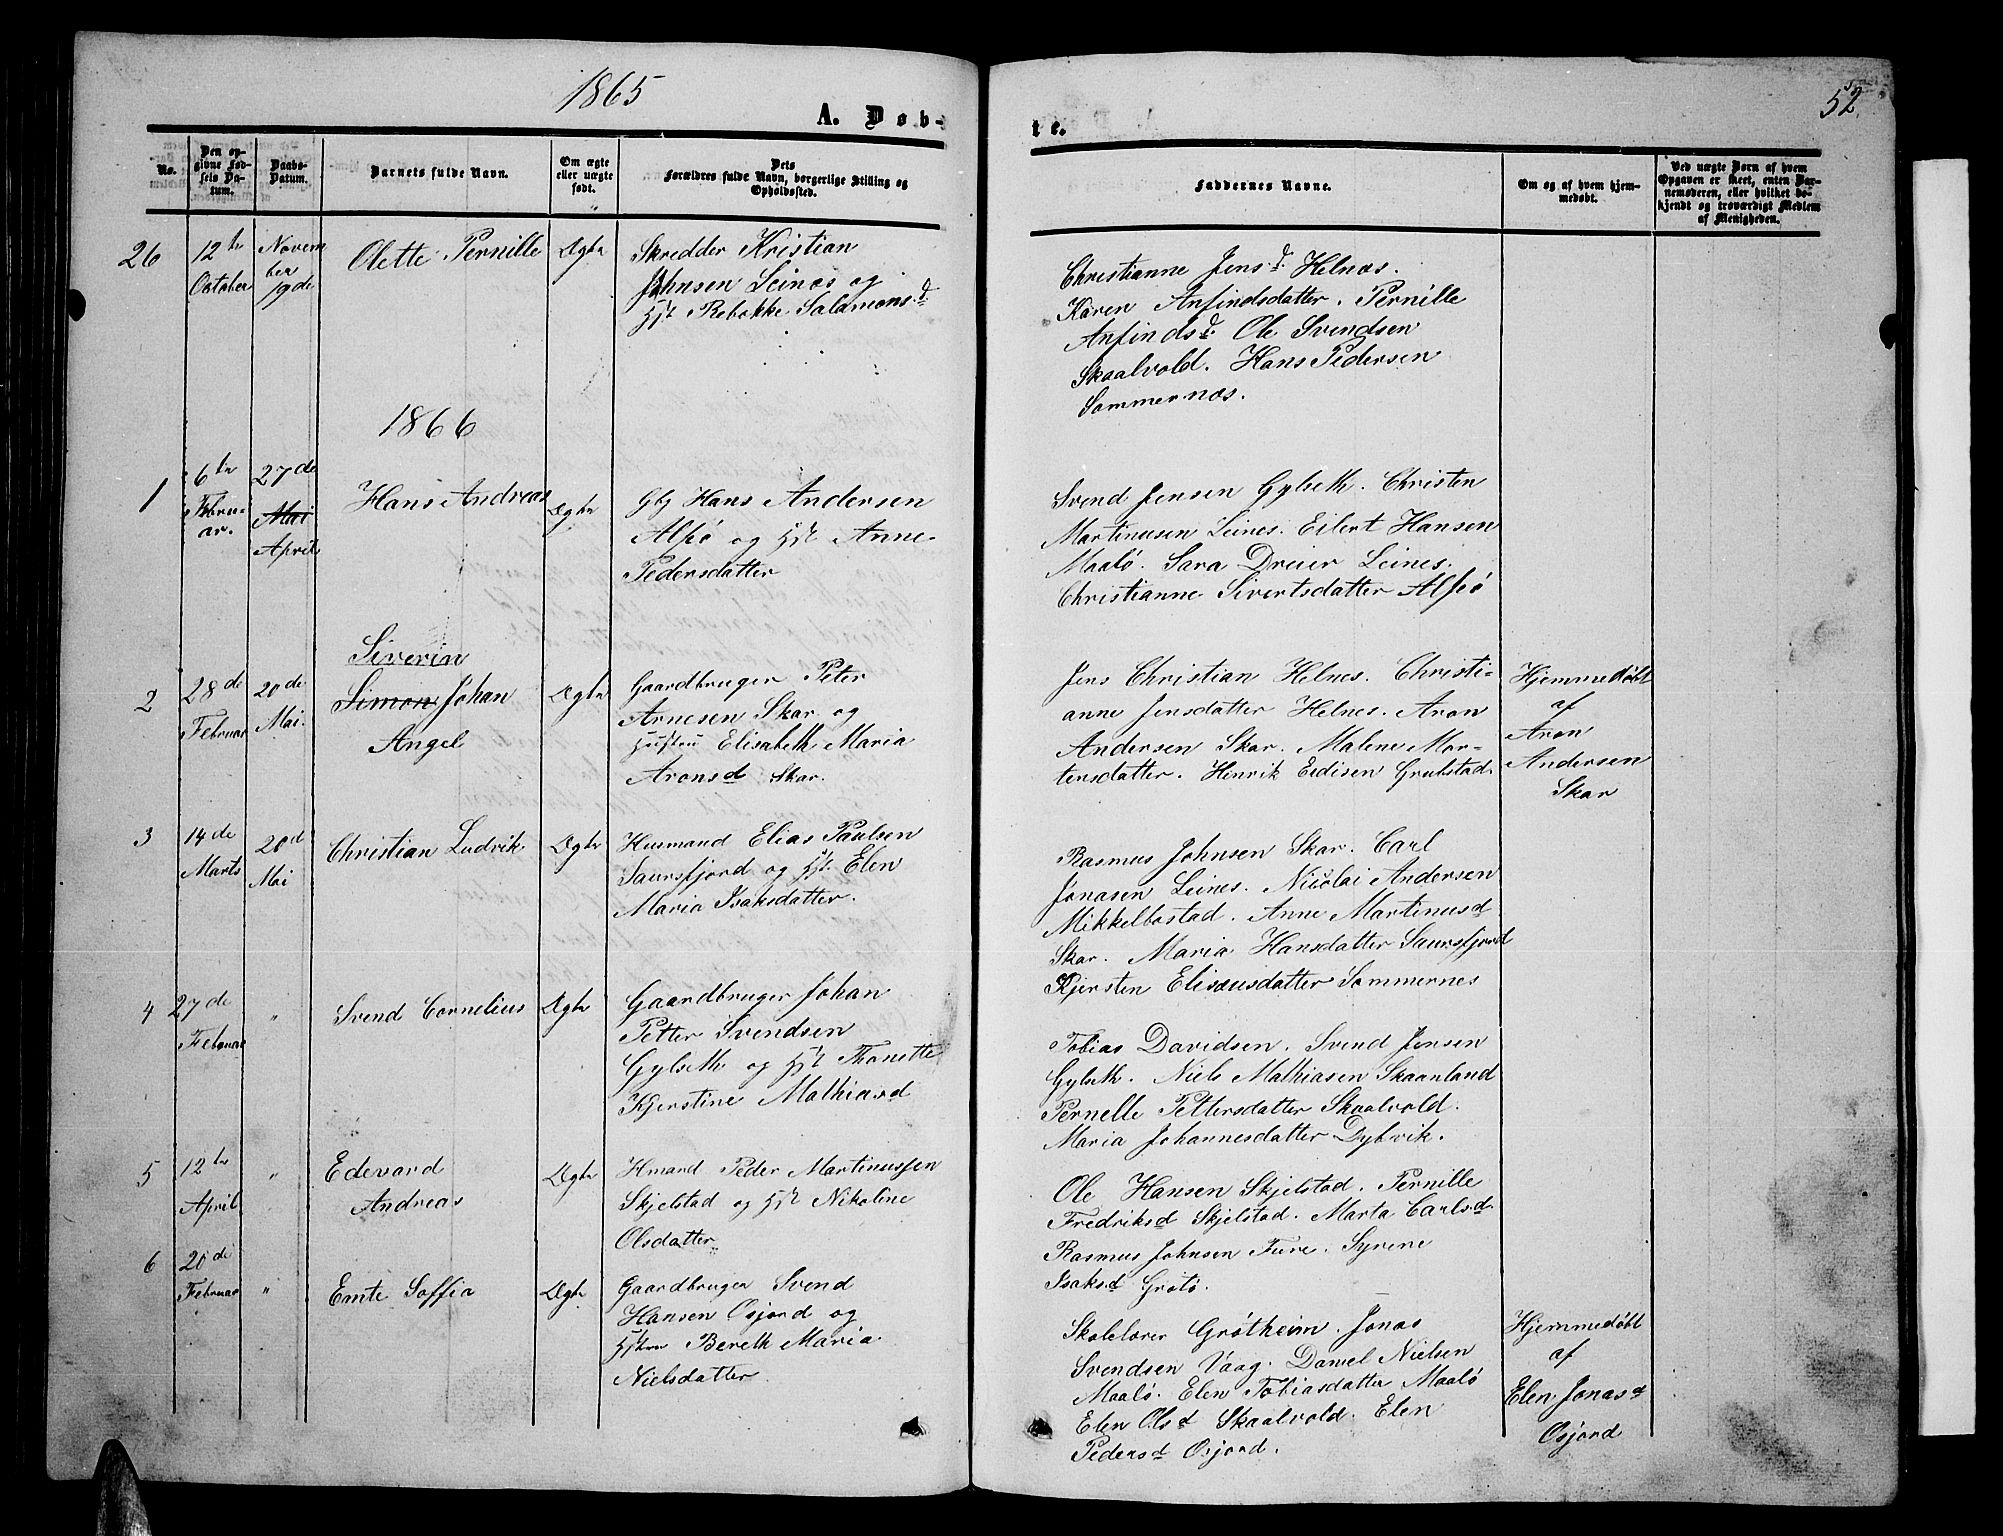 1865
52
A. Døb-
te.
No.
Den op-
givne Fød-
sels Da-
tum.
Daabs-
Datum.
Barnets fulde Navn.
Om ægte
eller uægte
født.
Dets
Forældres fulde Navn, borgerlige Stilling og
Opholdssted.
Faddernes Navne.
Om og af hvem hjem-
medøbt.
Ved uægte Børn af hvem
Opgaven er skeet, enten Bar-
nemoderen, eller hvilket be-
kjendt og troværdigt Medlem
af Menigheden.
26
12te
October
Novem
ber
19de
Olette Pernille
Ægte
Skredder Kristian
Johnsen Leines og
Hst Rebekke Salamonsd
Christianne Jensd. Helnæs.
Karen Anfindsdatter. Pernille
Anfindsd. Ole Svendsen
Skaalvold. Hans Pedersen
Sommernæs.
1866
1
6te
Februar
ar.
27de
Mai
April
Hans Andreas
Ægte
Gbg Hans Andersen
Alsø og Hst Anne
Pedersdatter
Svend Jensen Gylseth. Christen
Martinusen Leines. Eilert Hansen
Maalø. Sara Dreier Leines.
Christianne Sivertsdatter Alsø
2
28de
Februar
20de
Mai.
Siverin
Simon Johan
Angel
Ægte
Gaardbruger Peter
Arnesen Skar og
Hustru Elisabeth Maria
Aronsd Skar.
Jens Christian Helnes. Christi-
anne Jensdatter Helnes. Aron
Andersen Skar. Malene Mor-
tensdatter. Henrik Edisen Grubstad.
Hjemmedøbt
af
Aron
Andersen
Skar
3
14de
Marts
20d
Mai
Christian Ludvik
Ægte
Husmand Elias Paulsen
Saursfjord og Hst. Elen
Maria Isaksdatter.
Rasmus Johnsen Skar. Carl
Jonasen Leines. Nicolai Andersen
Mikkelbostad. Anne Martinusd
Skar. Maria Hansdatter Saursfjord
Kjersten Elisæusdatter Sommernes
4
27de
Februar
"
Svend Cornelius
Ægte
Gaardbruger Johan
Petter Svendsen
Gylseth og Hst Thonette
Kjerstine Mathiasd
Tobias Davidsen. Svend Jensen
Gylseth. Niels Mathiasen Skaanland
Pernelle Pettersdatter Skaalvold.
Maria Johannesdatter Dybvik.
5
12te
April
"
Edevard
Andreas
Ægte
Hmand Peder Martinussen
Skjelstad og Hst Nikoline
Olsdatter
Ole Hansen Skjelstad. Pernille
Fredriksd Skjelstad. Marta Carlsd.
Rasmus Johnsen Fure. Syrene
Isaksd Grøtø.
6
20de
Februar
"
Emte Soffia
Ægte
Gaardbruger Svend
Hansen Osjord og
Hstru Bereth Maria
Nielsdatter
Skolelærer Grøtheim. Jonas
Svendsen Vaag. Daniel Nielsen
Maalø. Elen Tobiasdatter Maalø
Elen Olsd Skaalvold. Elen
Pedersd Osjord.
Hjemmedøbt
af
Elen Jonasd
Osjord